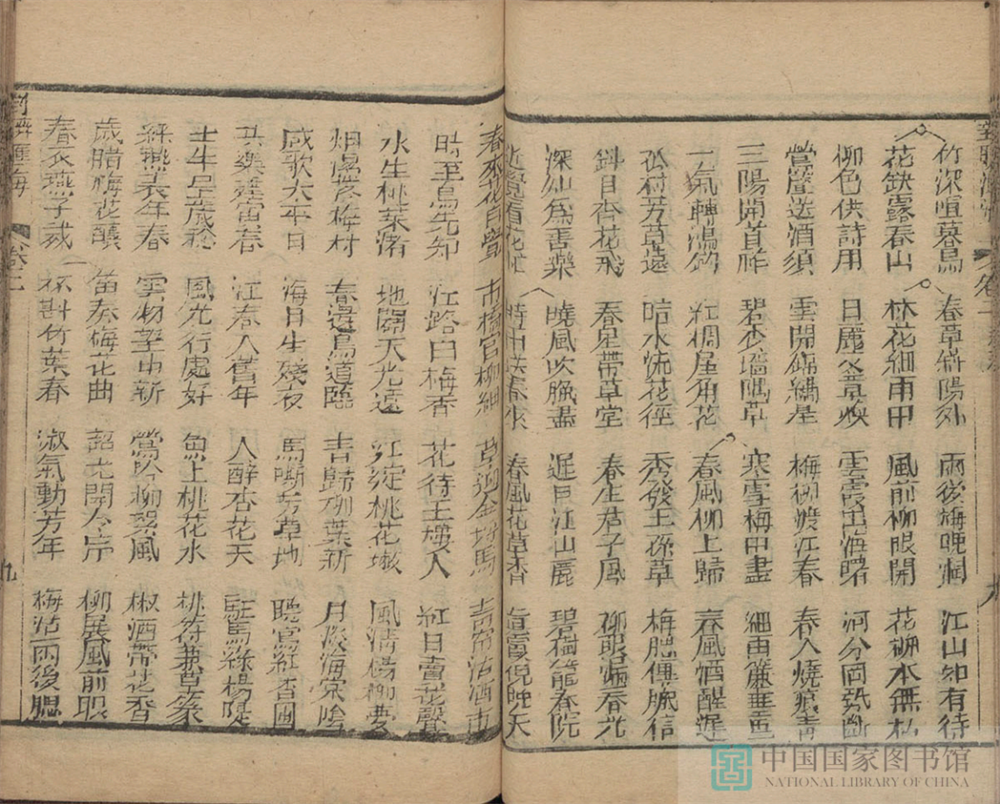 竹深喧暮鳥 春草齊陽外 雨後梅晚凋 江山如有待
花缺露春山 林花細雨中 風前柳眼開 花柳本無私
柳色供詩用 日麗參草煥 雲霞出海曙 河分岡勢斷
鶯聲送酒須 雲開錦繡星 梅柳渡江春 春入燒痕青
三陽開首祚 碧杏墻隅草 寒雪梅中盡 細雨簾垂重
一氣轉鴻鈞 紅稠屋角花 春風柳上歸 春風酒醒遲
孤村芳草遠 哈水流花徑 秀發王孫草 梅肥傳臘信
斜日杏花飛 春星帶草堂 春生君子風 柳眼漏春光
深仙為善樂 曉風吹臘盡 遲日江山麗 碧樹籠春院
看花 時中 春來 春風花草香 夏晚晚天
春來花自發 市橋官柳細 草迎金埒馬 青帘沽酒市
時至鳥先知 江路白梅香 花待玉樓人 紅日賣花聲
水生桃葉渚 地開天光遠 紅綻桃花塢 風清楊柳
烟濕落梅村 春邊鳥道臨 青歸柳葉新 月溪海棠陰
咸歌太平日 海日生殘夜 馬嘶芳草地 聽鶯紅杏園
共樂建寅春 江春入舊年 人醉杏花天 駐馬綠楊隄
土牛呈歲稔 風光行處好 魚上桃花水 桃符兼草篆
綵燕表年春 雲物望中新 鶯吟柳絮風 椒酒帶花香
歲腊梅花釀 笛奏梅花曲 韶光開令序 柳展風前眼
春衣燕子裁 杯斟竹葉春 淑氣動芳年 梅沾雨後腮
匯海 卷二 九